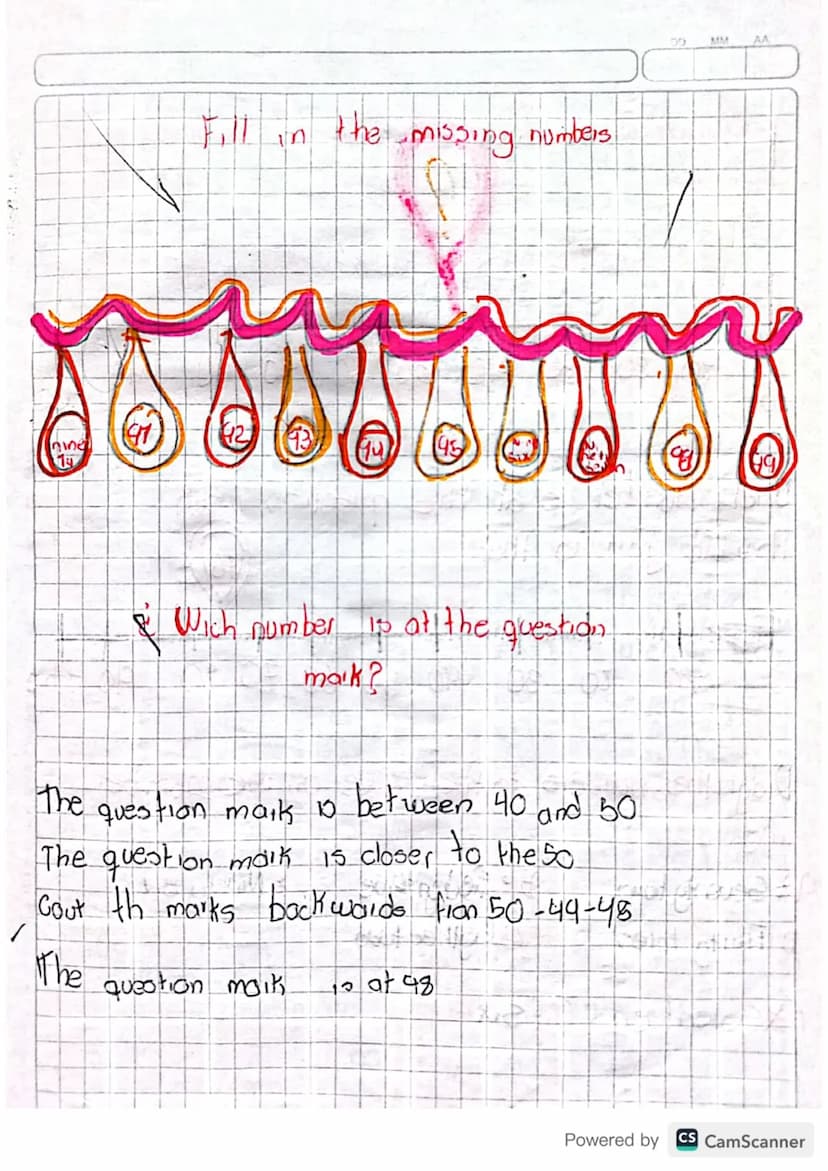 DD MM AA
Fill in the missing numbers
ninety 91 92 93 94 95 Ninety six 98 99
¿ Wich number is at the question
mark?
The question mark is between 40 and 50
The question mark is closer to the 50
Cout th marks backwards fron 50-49-48
The question mark is at 48
Powered by CS CamScanner